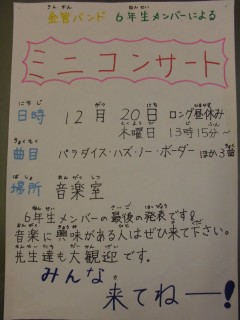 金管バンド 6年生メンバーによる
ミニコンサート
日時 12月20日 ロング昼休み
木曜日 13時15分〜
曲目 パラダイス・ハズ・ノー・ボーダー ほか3曲
場所 音楽室
6年生メンバーの最後の発表です!
音楽に興味がある人はぜひ来て下さい。
先生達も大観迎です。
みんな
来てねー!